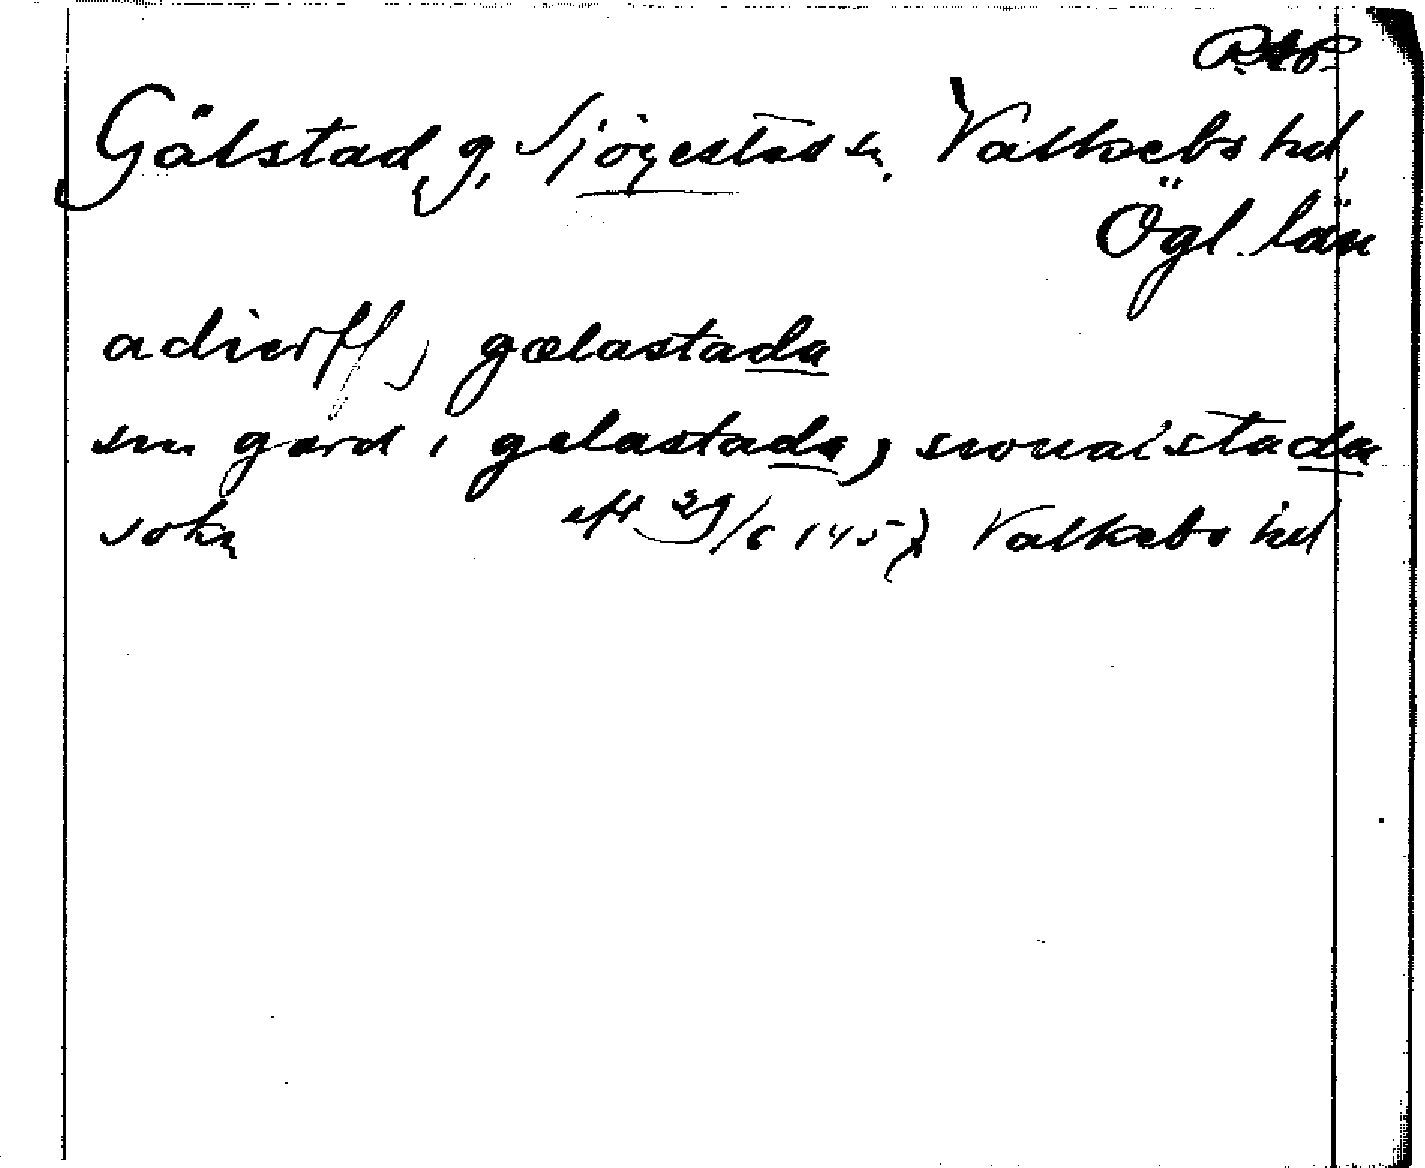 RAP
Gälstad, g, Sjögestad sn. Valkebo hd,
Ögl. län
adierff, gælastada
sin gard i gelastada, siouaistada
sokn eft 29/6 1457 Valkebo hd